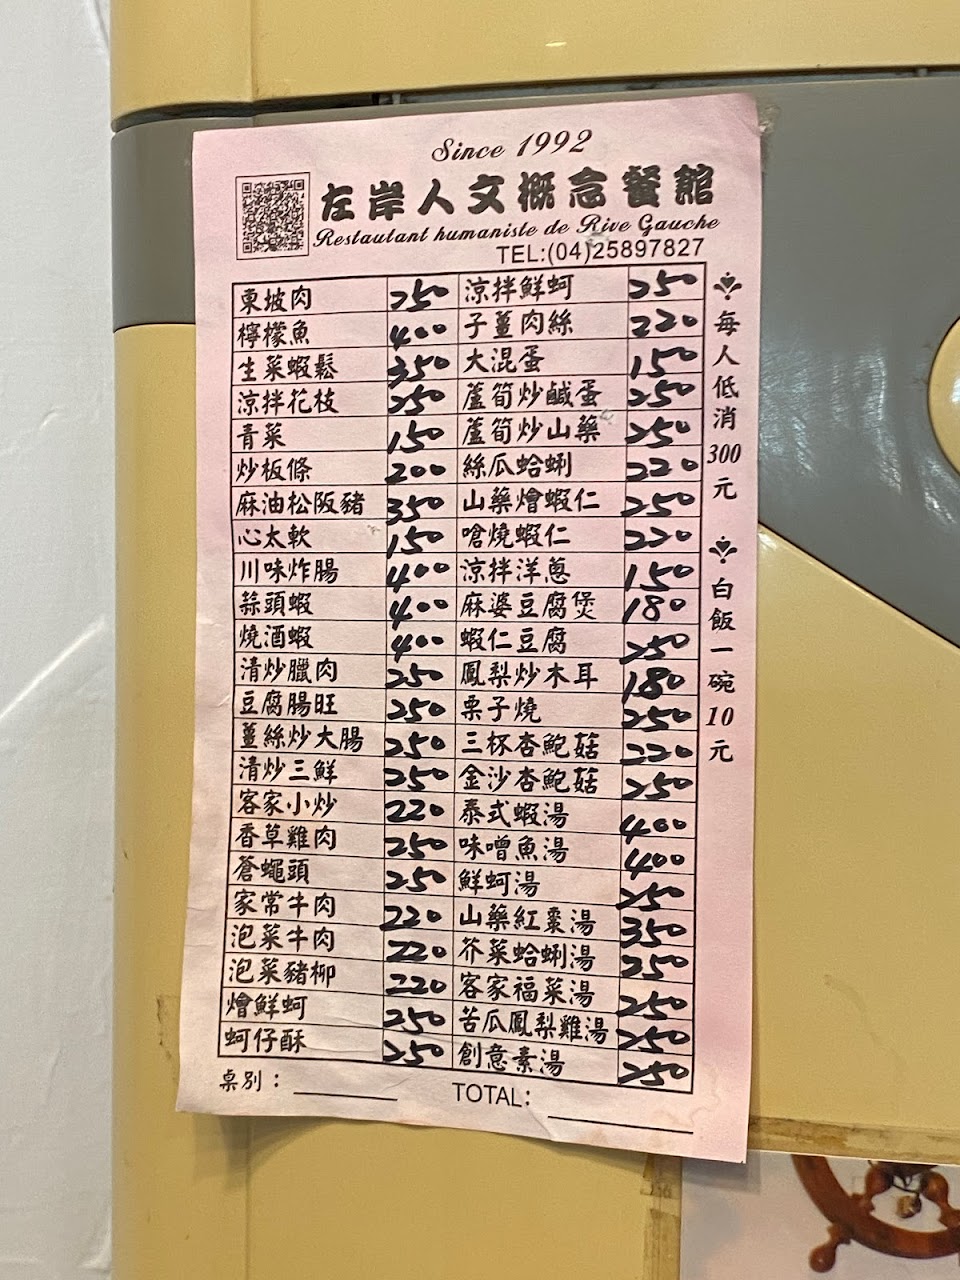 Since 1992
左岸人文概念餐館
Restautant humaniste de Rive Gauche
TEL:(04)25897827
東坡肉 250 涼拌鮮蚵 250
檸檬魚 400 子薑肉絲 220
生菜蝦鬆 350 大混蛋 150
涼拌花枝 250 蘆筍炒鹹蛋 250
青菜 150 蘆筍炒山藥 250
炒板條 200 絲瓜蛤蜊 220
麻油松阪豬 350 山藥燴蝦仁 250
心太軟 150 嗆燒蝦仁 220
川味炸腸 400 涼拌洋蔥 150
蒜頭蝦 400 麻婆豆腐煲 180
燒酒蝦 400 蝦仁豆腐 250
清炒臘肉 250 鳳梨炒木耳 180
豆腐腸旺 250 栗子燒 250
薑絲炒大腸 250 三杯杏鮑菇 220
清炒三鮮 250 金沙杏鮑菇 250
客家小炒 220 泰式蝦湯 400
香草雞肉 250 味噌魚湯 400
蒼蠅頭 250 鮮蚵湯 250
家常牛肉 220 山藥紅棗湯 350
泡菜牛肉 220 芥菜蛤蜊湯 250
泡菜豬柳 220 客家福菜湯 250
燴鮮蚵 250 苦瓜鳳梨雞湯 250
蚵仔酥 250 創意素湯 250
桌別： TOTAL:
每人低消300元
白飯一碗10元